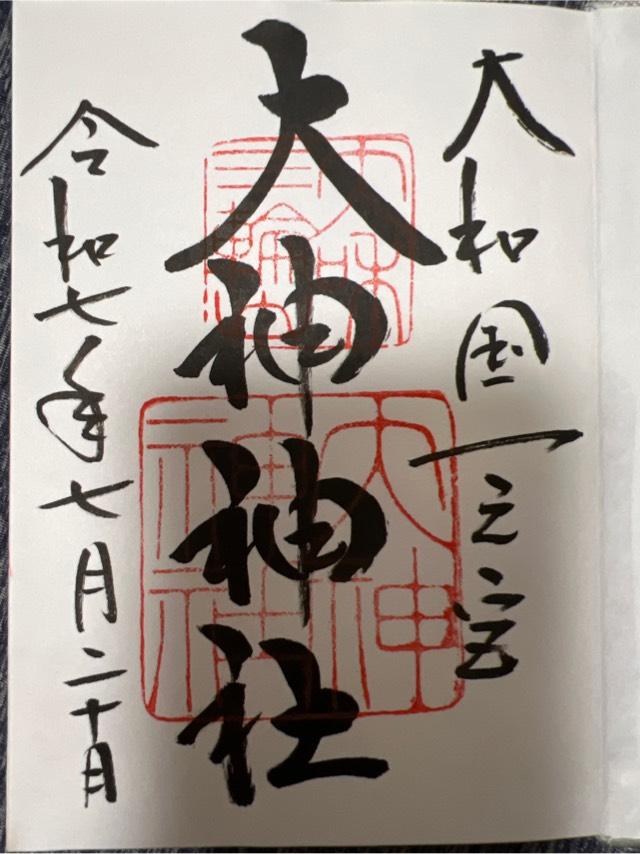 大和国一之宮
大神神社
令和七年七月二十日
大神
神社